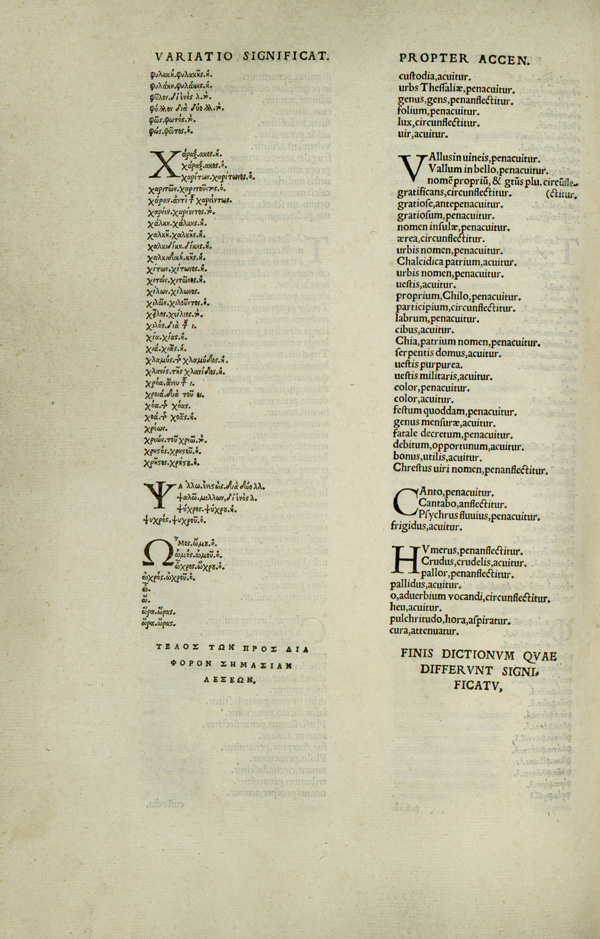 VARIATIO SIGNIFICAT.
φυλακὴ.φυλακῆς.ἡ.
φυλάκη.φυλάκης.ἡ.
φῦλον.
φύλλον διὰ δύο λλ.
φῶς.φωτός.
φώς.φῶτος.ὁ.
Χάραξ.ακος.ἡ.
χάραξ.ακος.ὁ.
Χαρίτων.χαρίτωνος.ὁ.
χαριτῶν.
χάριεν.ἀντὶ
χαρίεν.χαρίεντος.
χάλκη.χάλκης.ἡ.
χαλκῆ.χαλκῆς.ἡ.
χίτων.χίτωνος.
χιτών.χιτῶνος.
χίλων.χίλωνος.
χιλός.διὰ
χία.χίας.ἡ.
χιά.χιᾶς.ἡ.
χλανὶς.τῆς χλανίδος.ἡ.
χρόα.ἄνευ
χροιά.διὰ τοῦ
χρίων.
χριῶν.τοῦ
χρηστός.χρηστοῦ.ὁ.
Ψάλλω.
ψαλῶ.μέλλων.
ψύχρος.ψύχρου.ὁ.
ψυχρός.ψυχροῦ.ὁ.
Ὦμος.ὤμου.ὁ.
ὠμός.ὠμοῦ.ὁ.
ὦχρος.ὤχρου.ὁ.
ὠχρός.ὠχροῦ.ὁ.
ὦ.
ὤ.
ὥρα.ὥρας.
ὤρα.ὤρας.
ΤΕΛΟΣ ΤΩΝ ΠΡΟΣ ΔΙΑ
ΦΟΡΟΝ ΣΗΜΑΣΙΑΝ
ΛΕΞΕΩΝ.
PROPTER ACCEN.
custodia,acuitur.
urbs Thessaliæ,penacuitur.
genus,gens,penanflectitur.
folium,penacuitur.
lux,circunflectitur.
uir,acuitur.
VAllus in uineis,penacuitur.
Vallum in bello,penacuitur.
nomē propriū, & gtūs plu. circūfle-
gratificans,circunflectitur. (ctitur.
gratiose,antepenacuitur.
gratiosum,penacuitur.
nomen insulæ,penacuitur.
ærea,circunflectitur.
urbis nomen,penacuitur.
Chalcidica patrium,acuitur.
urbis nomen,penacuitur.
uestis,acuitur.
proprium,Chilo,penacuitur.
participium,circunflectitur.
labrum,penacuitur.
cibus,acuitur.
Chia,patrium nomen,penacuitur.
serpentis domus,acuitur.
uestis purpurea.
uestis militaris,acuitur.
color,penacuitur.
color,acuitur.
festum quoddam,penacuitur.
genus mensuræ,acuitur.
fatale decretum,penacuitur.
debitum,opportunum,acuitur.
bonus,utilis,acuitur.
Chrestus uiri nomen,penanflectitur.
CAnto,penacuitur.
Cantabo,anflectitur.
Psychrus fluuius,penacuitur.
frigidus,acuitur.
HVmerus,penanflectitur.
Crudus,crudelis,acuitur.
pallor,penanflectitur.
pallidus,acuitur.
o,aduerbium vocandi,circunflectitur.
heu,acuitur.
pulchritudo,hora,aspiratur.
cura,attenuatur.
FINIS DICTIONVM QVAE
DIFFERVNT SIGNI,
FICATV,